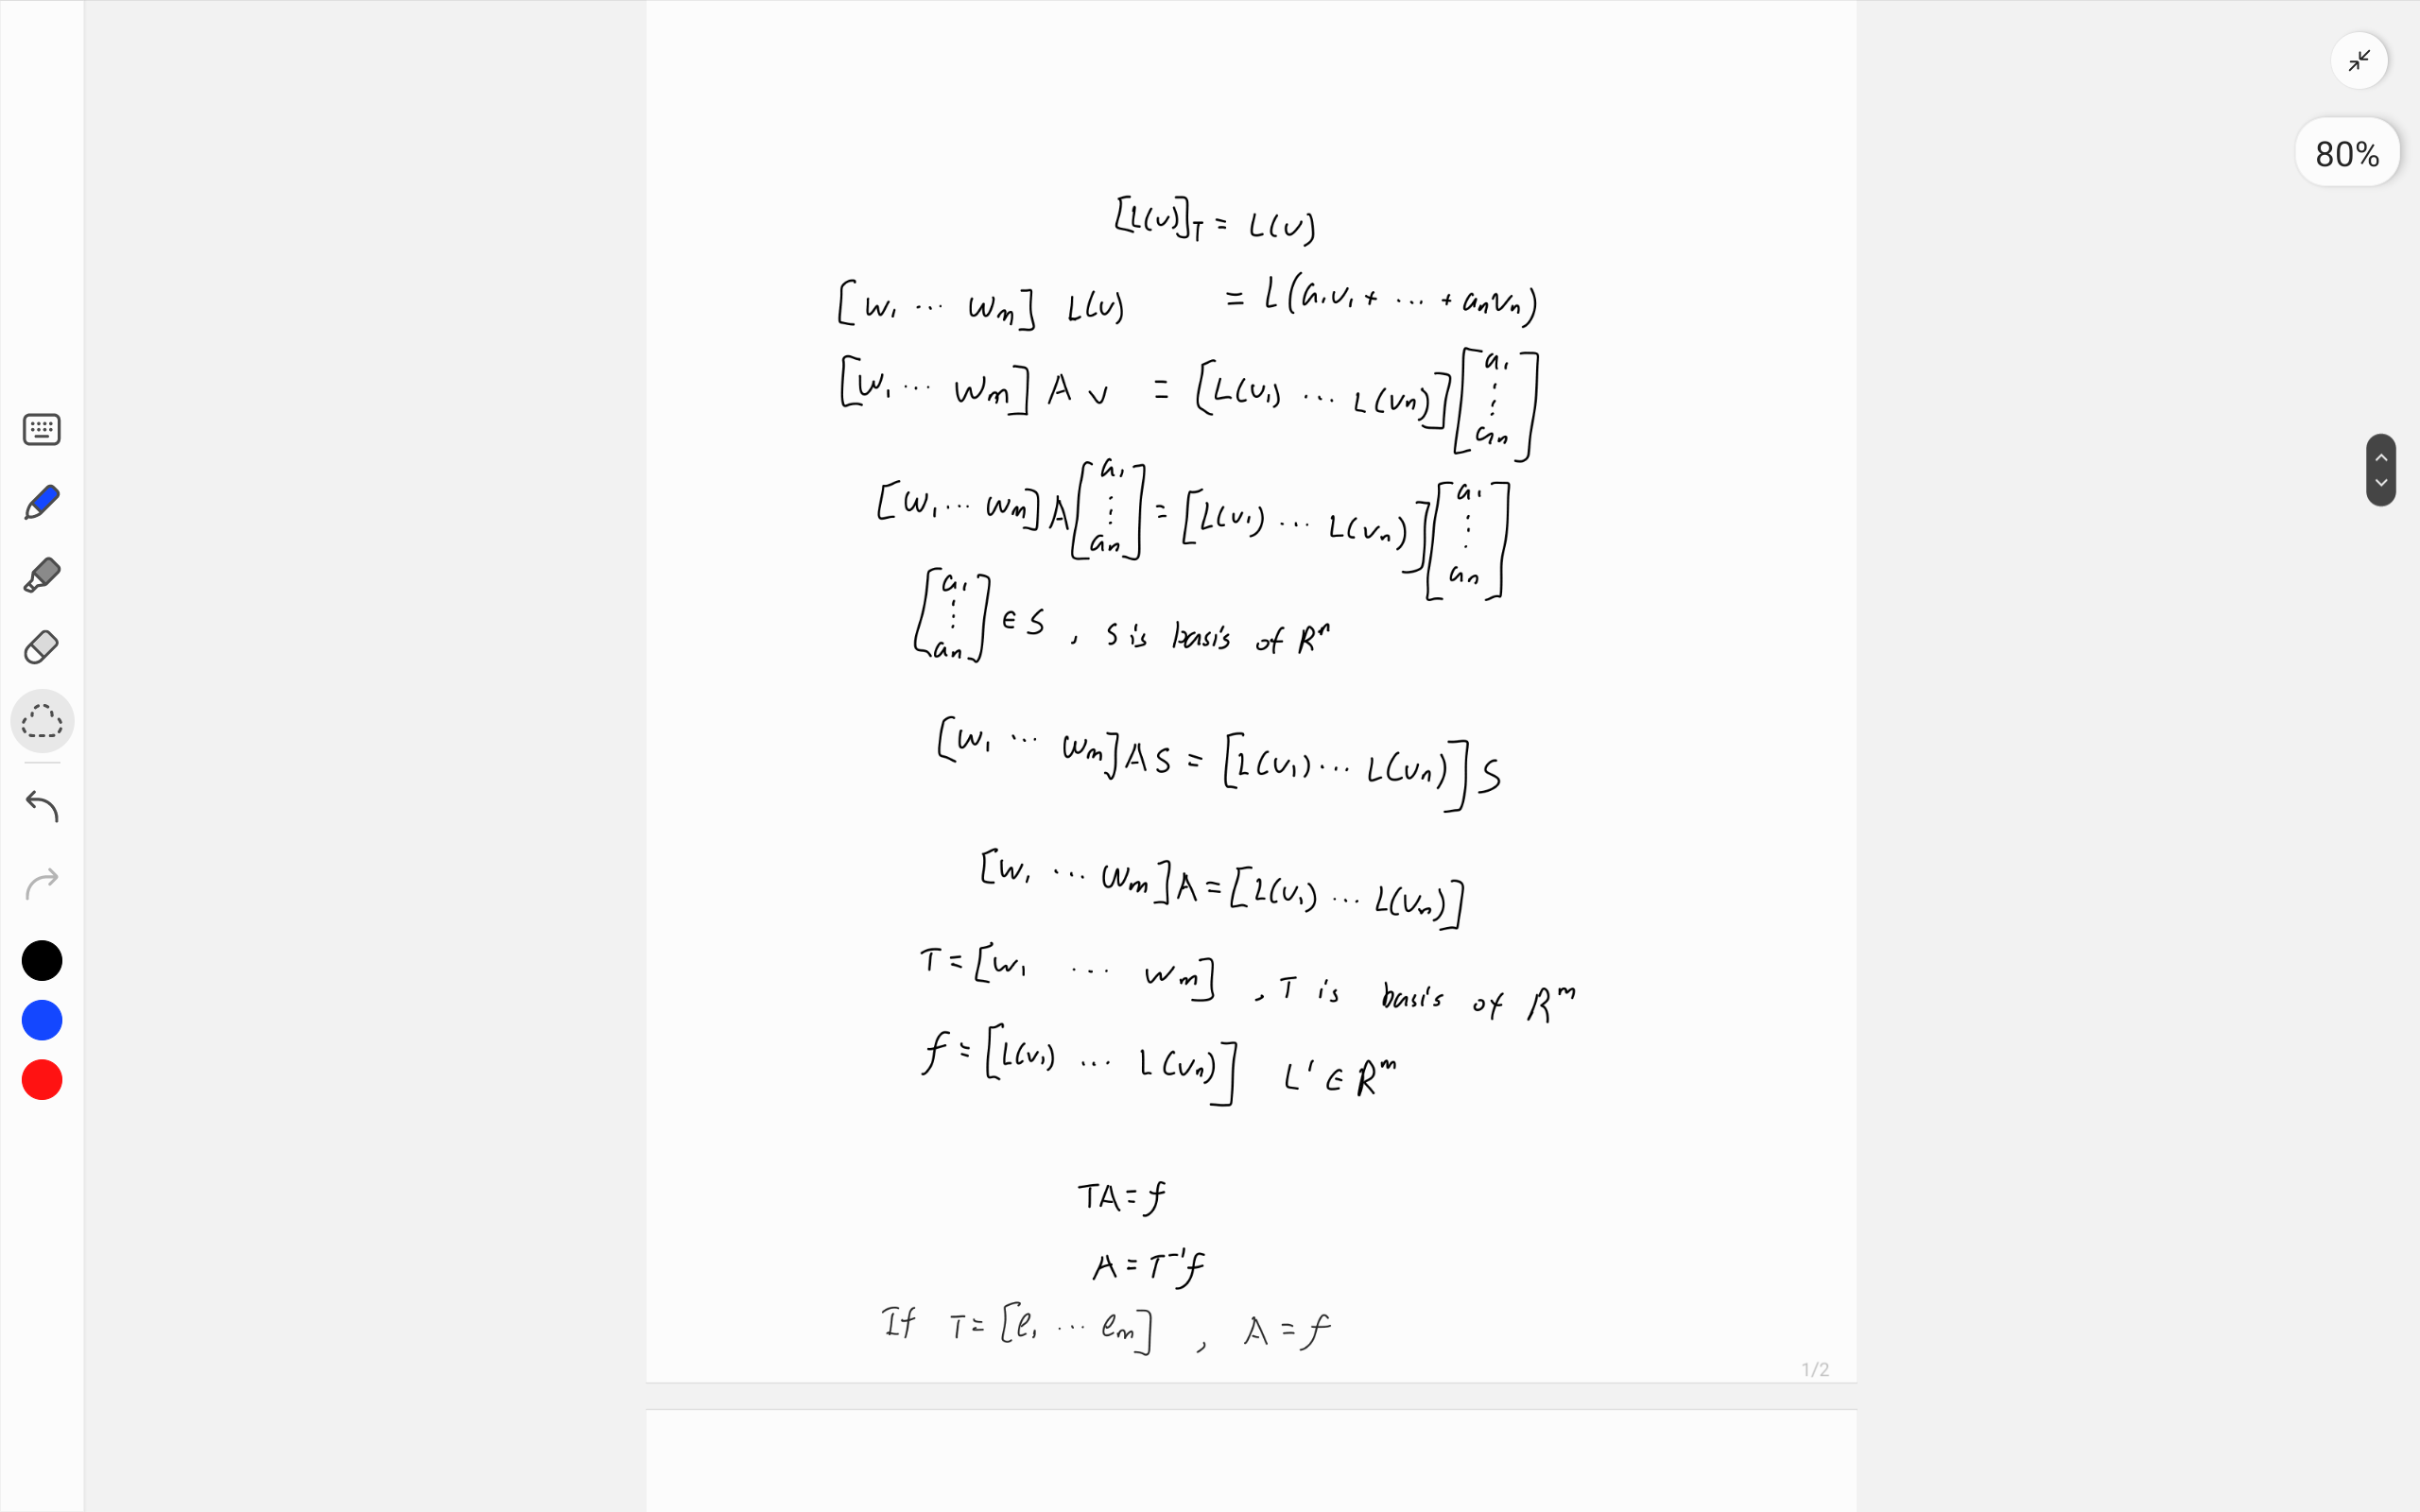 80%
[L(v)]_T = L(v)
[w₁ ⋯ wₘ] L(v) = L(a₁v₁ + ⋯ + aₙvₙ)
[w₁ ⋯ wₘ] A v = [L(v₁) ⋯ L(vₙ)] [a₁ ⋮ aₙ]
[w₁ ⋯ wₘ] A [a₁ ⋮ aₙ] = [L(v₁) ⋯ L(vₙ)] [a₁ ⋮ aₙ]
[a₁ ⋮ aₙ] ∈ S , S is basis of Rⁿ
[w₁ ⋯ wₘ] A S = [L(v₁) ⋯ L(vₙ)] S
[w₁ ⋯ wₘ] A = [L(v₁) ⋯ L(vₙ)]
T = [w₁ ⋯ wₘ] , T is basis of Rᵐ
f = [L(v₁) ⋯ L(vₙ)] L' ∈ Rᵐ
TA = f
A = T⁻¹f
If T = [e₁ ⋯ eₘ] , A = f
1/2